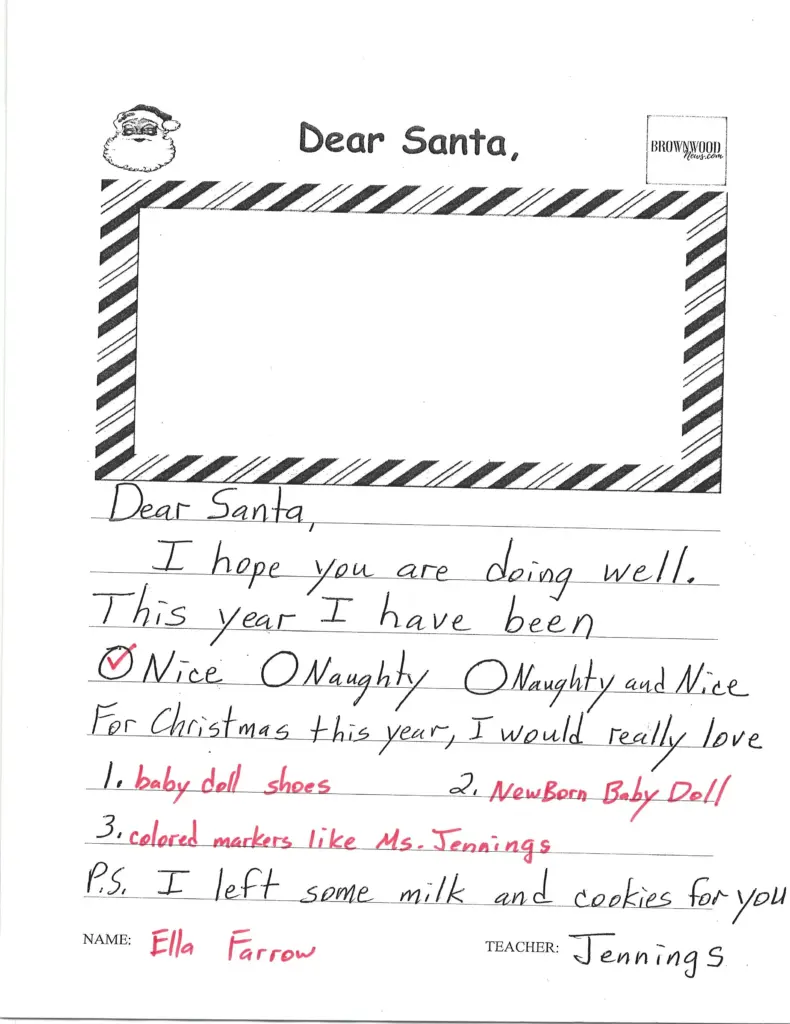 Dear Santa,
BROWNWOOD
News.com
Dear Santa,
I hope you are doing well.
This year I have been
Nice Naughty Naughty and Nice
For Christmas this year, I would really love
1. baby doll shoes 2. NewBorn Baby Doll
3. colored markers like Ms. Jennings
P.S. I left some milk and cookies for you
NAME: Ella Farrow TEACHER: Jennings